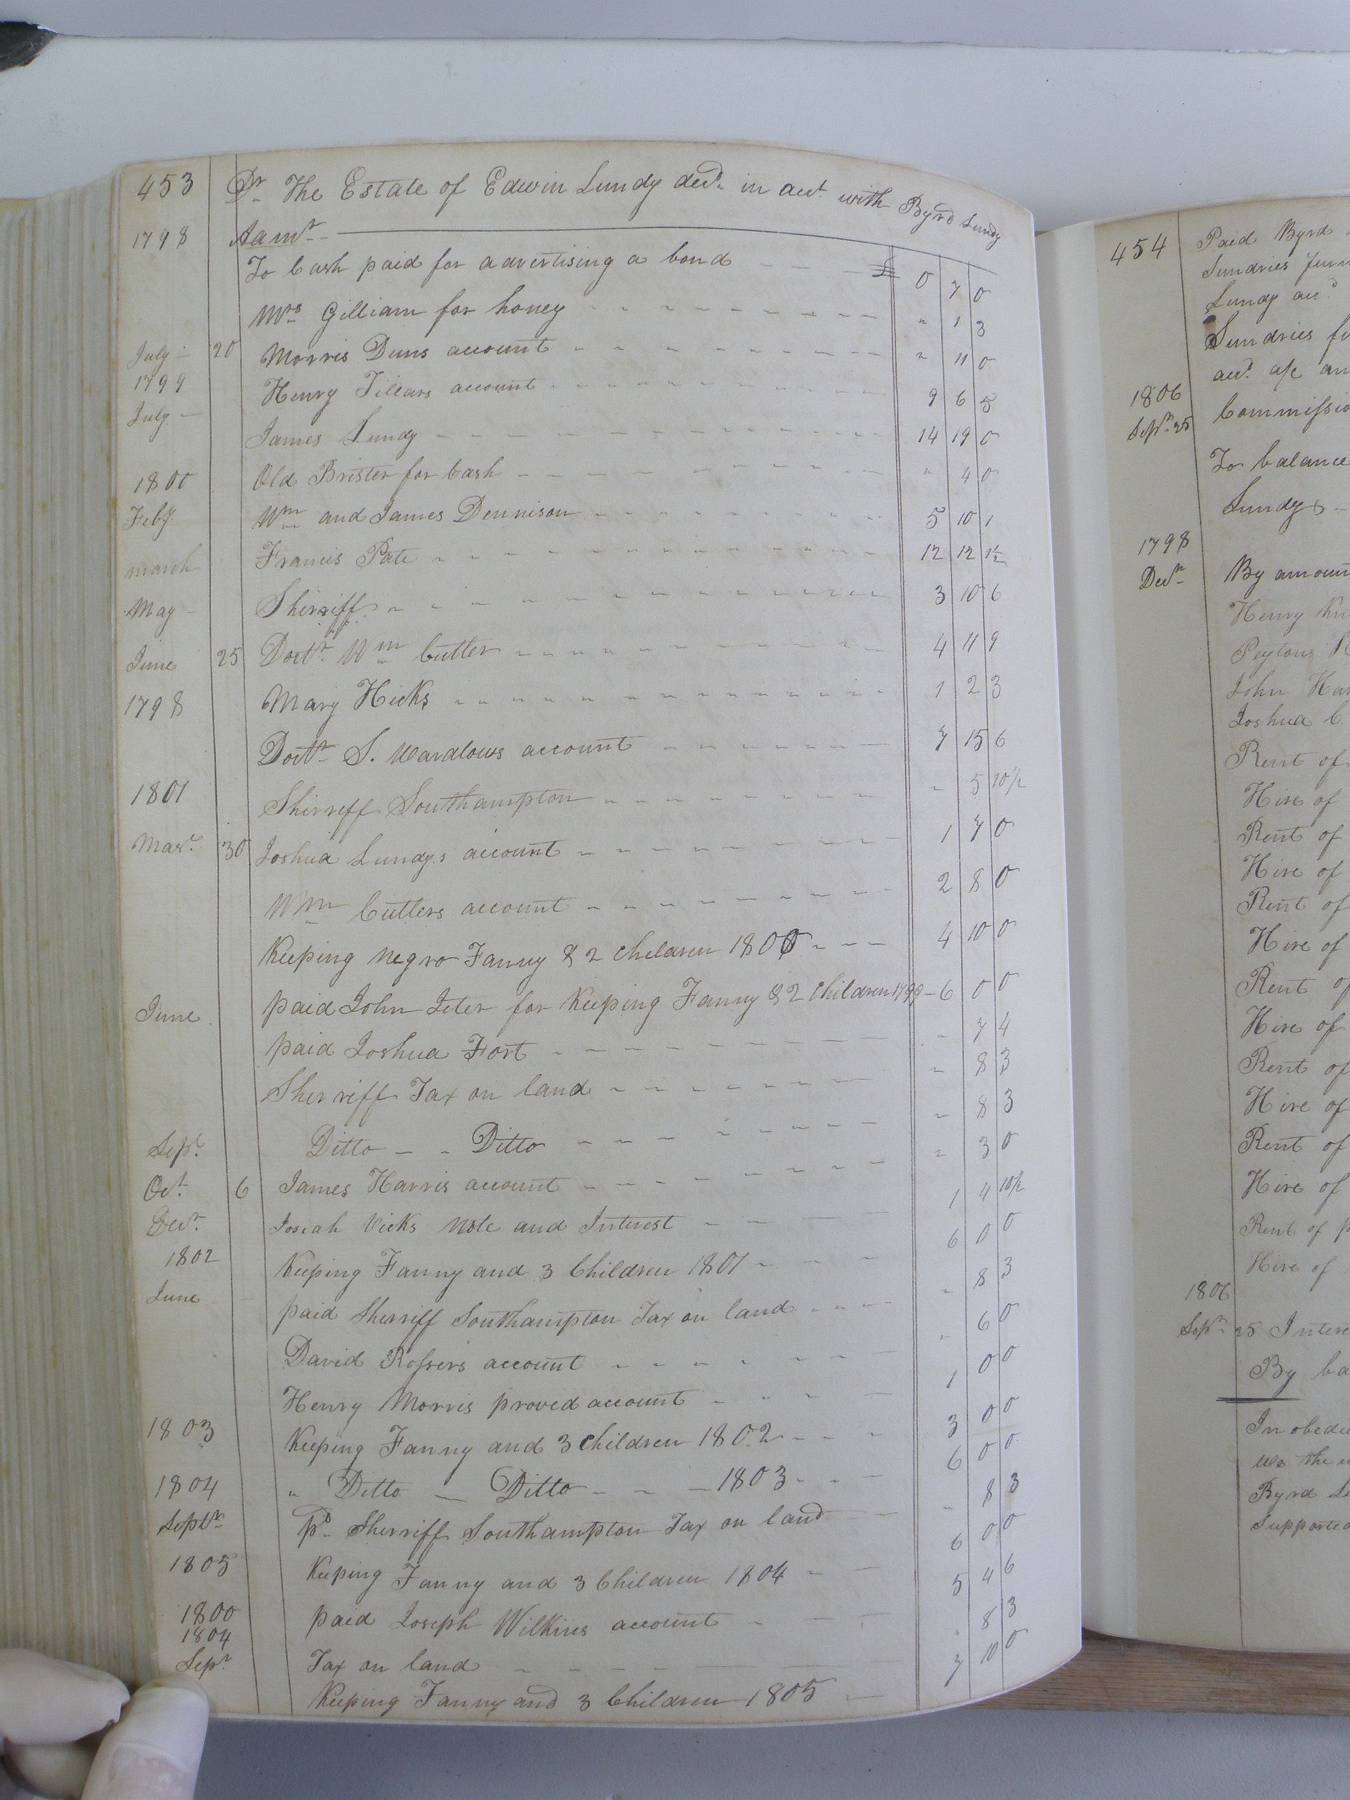 453 Dr. The Estate of Edwin Lundy decd. in acct. with Byrd Lundy
1798 Admr.
To Cash paid for advertising a bond £ 0 7 0
Mrs. Gilliam for honey " 1 3
July 20 Morris Duns account " 11 0
1799 Henry account 9 6 5
July James Lundy 14 19 0
1800 Old Brister for Cash " 4 0
Feby Wm. and James Dennison 5 10 1
march Francis Pate 12 12 1½
May Sherriff 3 10 6
June 25 Doctr. Wm. Cutler 4 11 9
1798 Mary Hicks 1 2 3
Doctr. S. Wardlows account 7 15 6
1801 Shirreff Southampton " 5 10½
Mar. 30 Joshua Lundys account 1 7 0
Wm. Cutlers account 2 8 0
Keeping negro Fanny & 2 Children 1800 4 10 0
June paid John Jeter for Keeping Fanny & 2 Children 1799 6 0 0
paid Joshua Fort " 7 4
Sherriff Tax on land " 8 3
Sept. Ditto Ditto " 8 3
Oct. 6 James Harris account " 3 0
Decr. Josiah Vicks note and Interest 1 4 10½
1802 Keeping Fanny and 3 Children 1801 6 0 0
June paid Sherriff Southampton Tax on land " 8 3
David Rossers account " 6 0
Henry Morris proved account 1 0 0
1803 Keeping Fanny and 3 Children 1802 3 0 0
1804 " Ditto Ditto 1803 6 0 0
Septr. pd. Sherriff Southampton Tax on land " 8 3
1805 Keeping Fanny and 3 Children 1804 6 0 0
1800 paid Joseph Wilkins account 5 4 6
1804
Sepr. Tax on land " 8 3
Keeping Fanny and 3 Children 1805 7 10 0
454 Paid Byrd
Sundries
Lundy
Sundries
acct. a/c
1806
Sepr. 25
To balance
Lundy
1798
Decr. By
Henry
Peytons
John
Joshua
Rent of
Hire of
Rent of
Hire of
Rent of
Hire of
Rent of
Hire of
Rent of
Hire of
Rent of
Hire of
Rent of
Hire of
1806
Sepr. 25
By
In
we the
Byrd